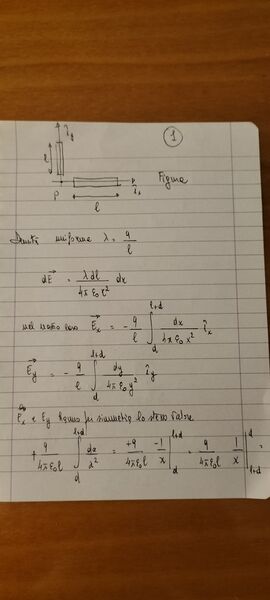 ①
î_y
l
P
î_x
l
Figura
Densità uniforme λ = q/l
dE⃗ = λ dl / 4π ε₀ r² dx
nel nostro caso E⃗_x = - q/l ∫_d^{l+d} dx / 4π ε₀ x² î_x
E⃗_y = - q/l ∫_d^{l+d} dy / 4π ε₀ y² î_y
E_x e E_y hanno per simmetria lo stesso valore
+ q / 4π ε₀ l ∫_d^{l+d} dx / x² = +q / 4π ε₀ l · -1/x |_d^{l+d} = q / 4π ε₀ l · 1/x |_{l+d}^d =